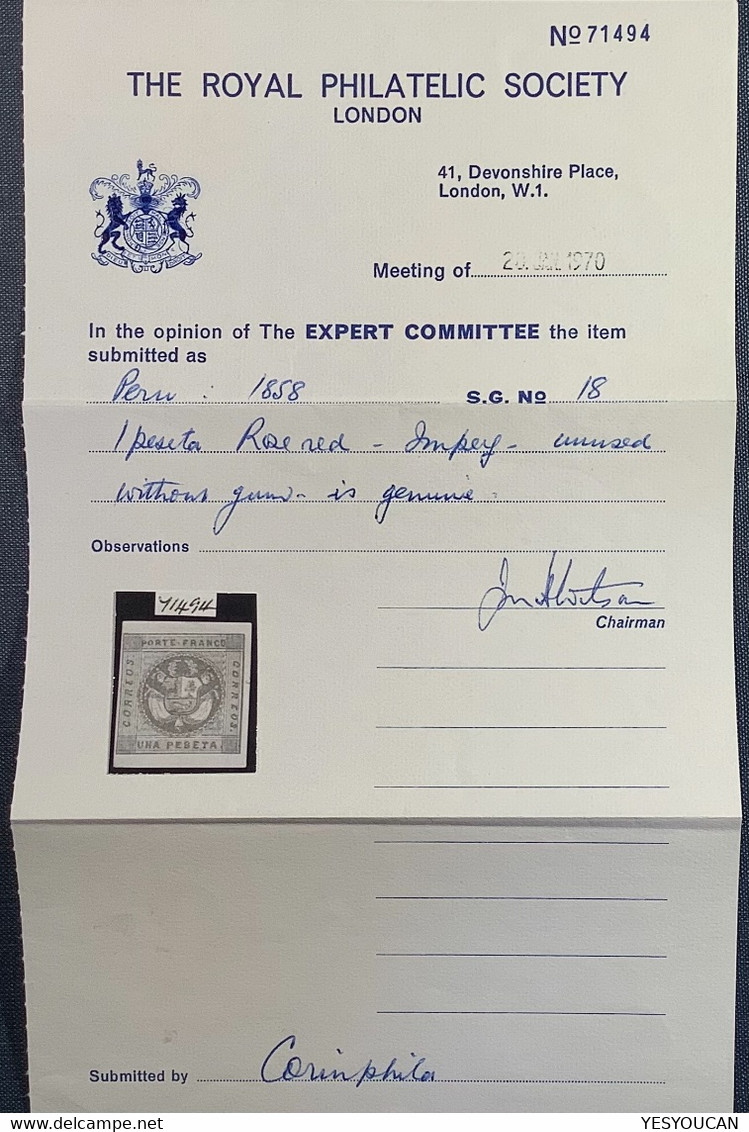 No 71494
THE ROYAL PHILATELIC SOCIETY
LONDON
41, Devonshire Place,
London, W.1.
Meeting of 20. 1970
In the opinion of The EXPERT COMMITTEE the item
submitted as
Peru : 1858 S.G. No 18
1 peseta Rose red - Imperf - unused
without gum - is genuine
Observations
Chairman
71494
PORTE FRANCO
CORREOS.
CORREOS.
UNA PESETA.
Submitted by Corinphila
YESYOUCAN